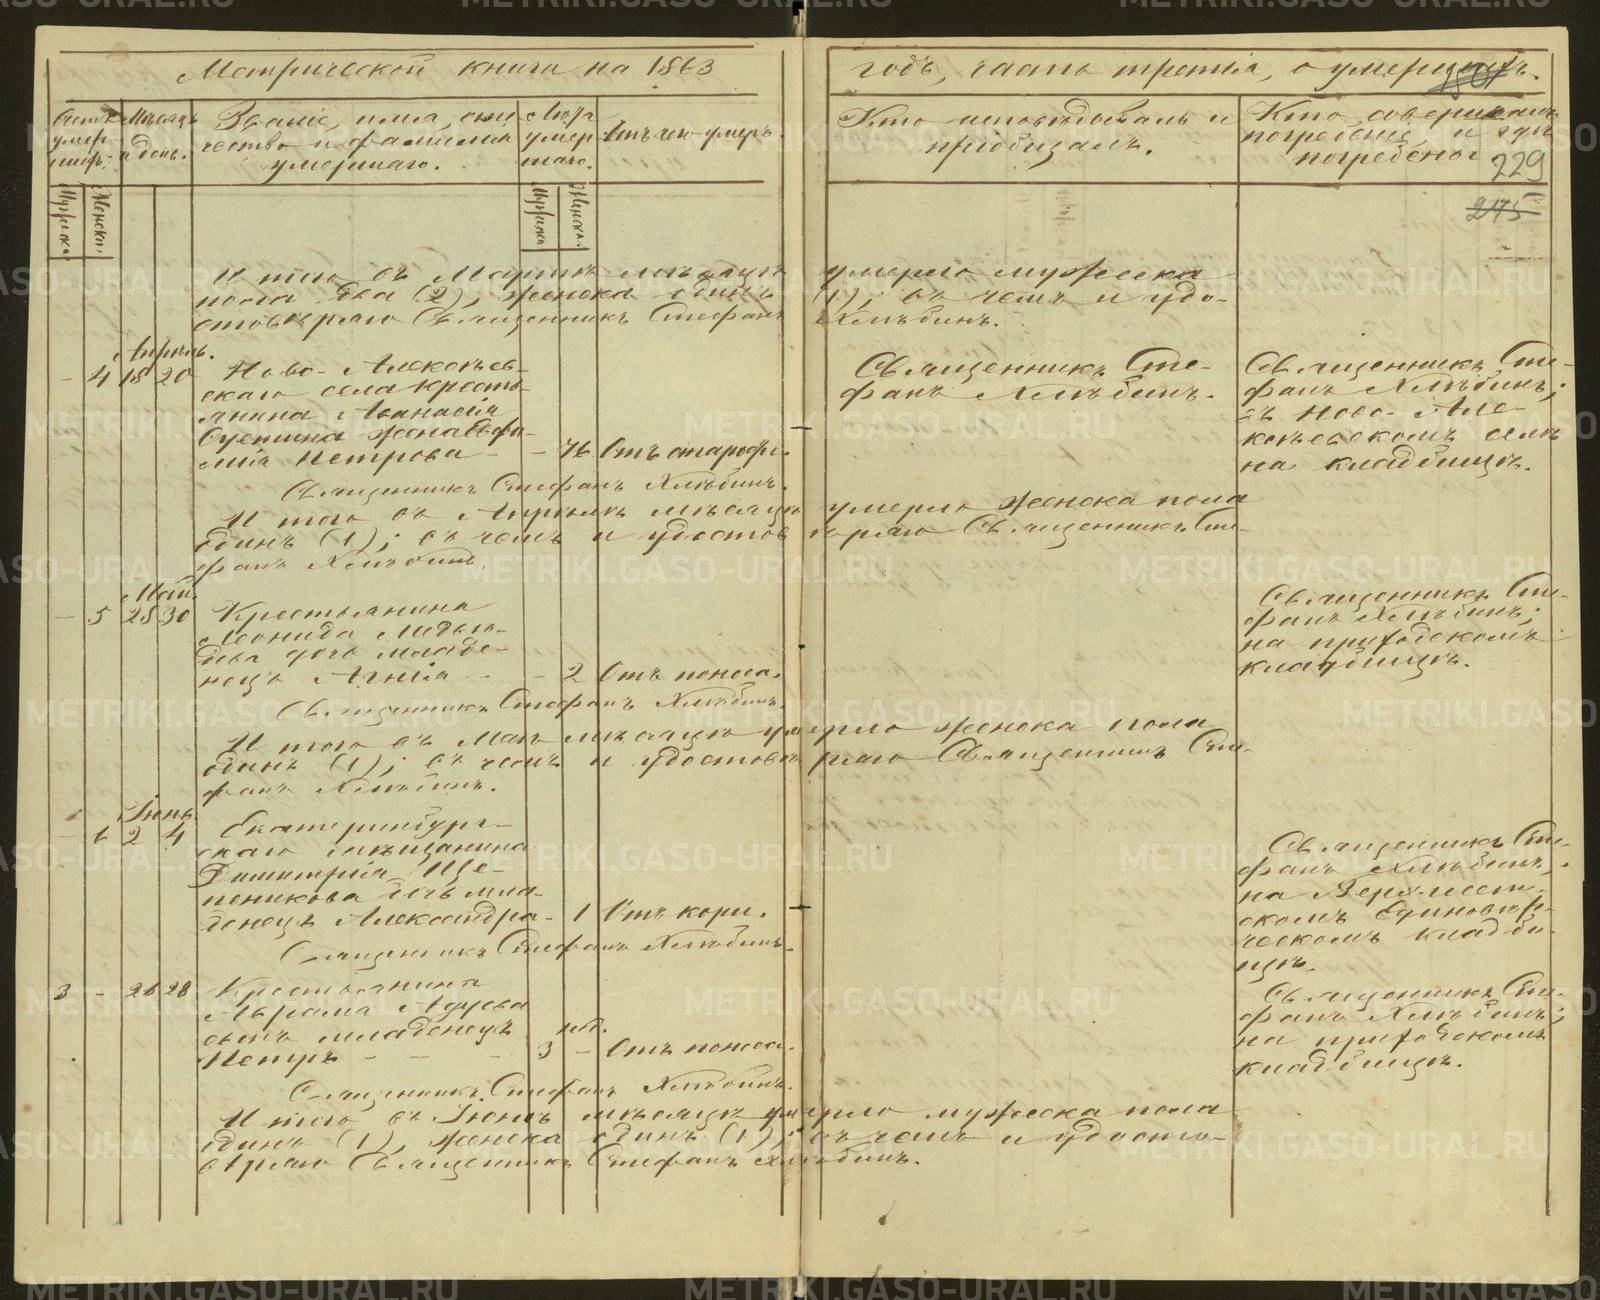 Метрической книги на 1863 годъ, часть третія, о умершихъ.
Счетъ умер-шихъ.
Мѣсяцъ и день.
Званіе, имя, оте-
чество и фамилія
умершаго.
Лѣта
умер-
шаго.
Отъ чего умеръ.
Кто исповѣдывалъ и
пріобщалъ.
Кто совершалъ
погребеніе и гдѣ
погребены
229
275
Мужска.
Женска.
Мужска
Женска.
И того въ Мартѣ мѣсяцѣ умерло мужеска
пола два (2), женска одинъ (1); въ чемъ и удо-
стовѣряю Священникъ Стефанъ Хлѣбинъ.
Апрѣль.
- 4 18 20 Ново-Алексѣев-
скаго села кресть-
янина Аѳанасія
жена Евфи-
мія Петрова - - 76 Отъ старости.
Священникъ Сте-
фанъ Хлѣбинъ.
Священникъ Сте-
фанъ Хлѣбинъ;
въ Ново-Але-
ксѣевскомъ селѣ
на кладбищѣ.
Священникъ Стефанъ Хлѣбинъ.
И того въ Апрѣлѣ мѣсяцѣ умерло женска пола
одинъ (1); въ чемъ и удостовѣряю Священникъ Сте-
фанъ Хлѣбинъ.
Май.
- 5 28 30 Крестьянина
Леонида
дочь младе-
нецъ Агнія - - 2 Отъ поноса.
Священникъ Сте-
фанъ Хлѣбинъ;
на приходскомъ
кладбищѣ.
Священникъ Стефанъ Хлѣбинъ.
И того въ Маѣ мѣсяцѣ умерло женска пола
одинъ (1); въ чемъ и удостовѣряю Священникъ Сте-
фанъ Хлѣбинъ.
Іюнь.
- 6 2 4 Екатеринбург-
скаго мѣщанина
Димитрія Ще-
пеникова дочь мла-
денецъ Александра - 1 Отъ кори.
Священникъ Сте-
фанъ Хлѣбинъ;
на Верхисет-
скомъ Единовѣр-
ческомъ кладби-
щѣ.
Священникъ Стефанъ Хлѣбинъ.
3 - 26 28 Крестьянина
Аврама
сынъ младенецъ
Петръ - - - 3 нед. - Отъ поноса.
Священникъ Сте-
фанъ Хлѣбинъ;
на приходскомъ
кладбищѣ.
Священникъ Стефанъ Хлѣбинъ.
И того въ Іюнѣ мѣсяцѣ умерло мужеска пола
одинъ (1), женска одинъ (1); въ чемъ и удосто-
вѣряю Священникъ Стефанъ Хлѣбинъ.
METRIKI.GASO-URAL.RU